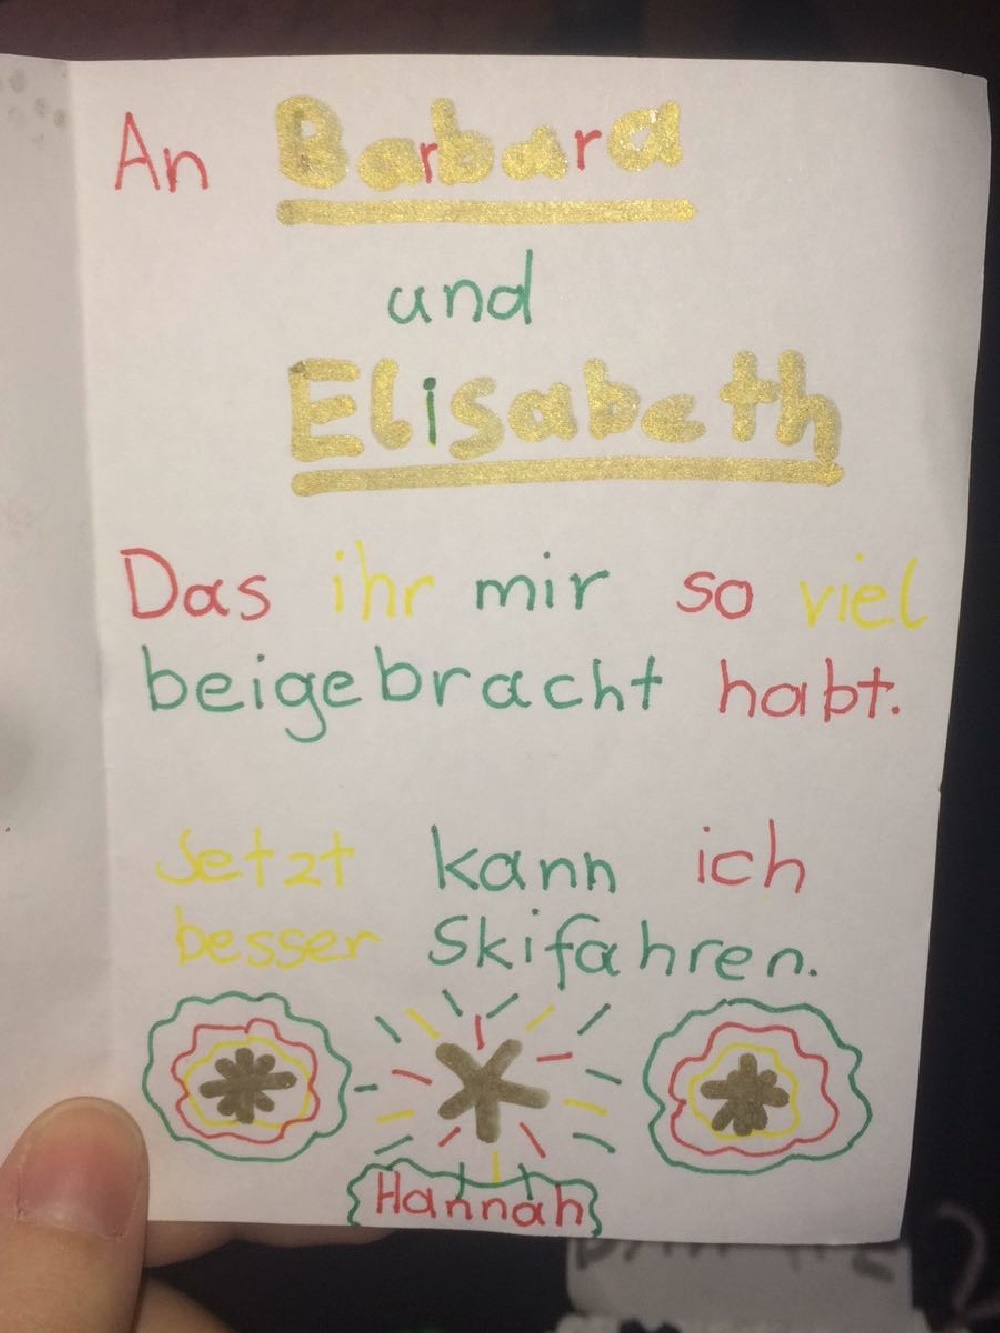 An Barbara
und
Elisabeth
Das ihr mir so viel
beigebracht habt.
Jetzt kann ich
besser Skifahren.
Hannah